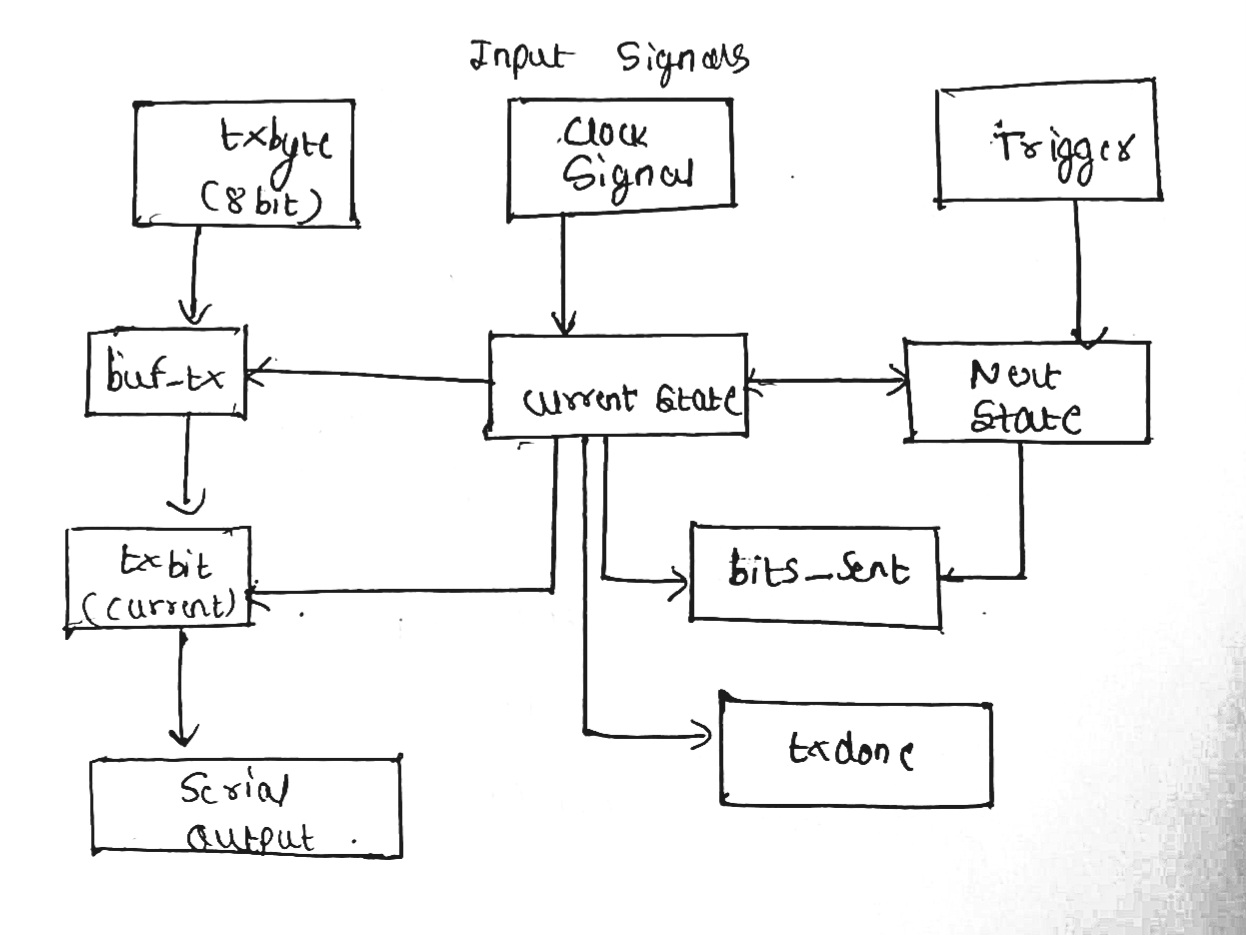 Input Signals
txbyte
(8 bit)
Clock
Signal
Trigger
buf-tx
current State
Next
State
txbit
(current)
bits_sent
txdone
Serial
output